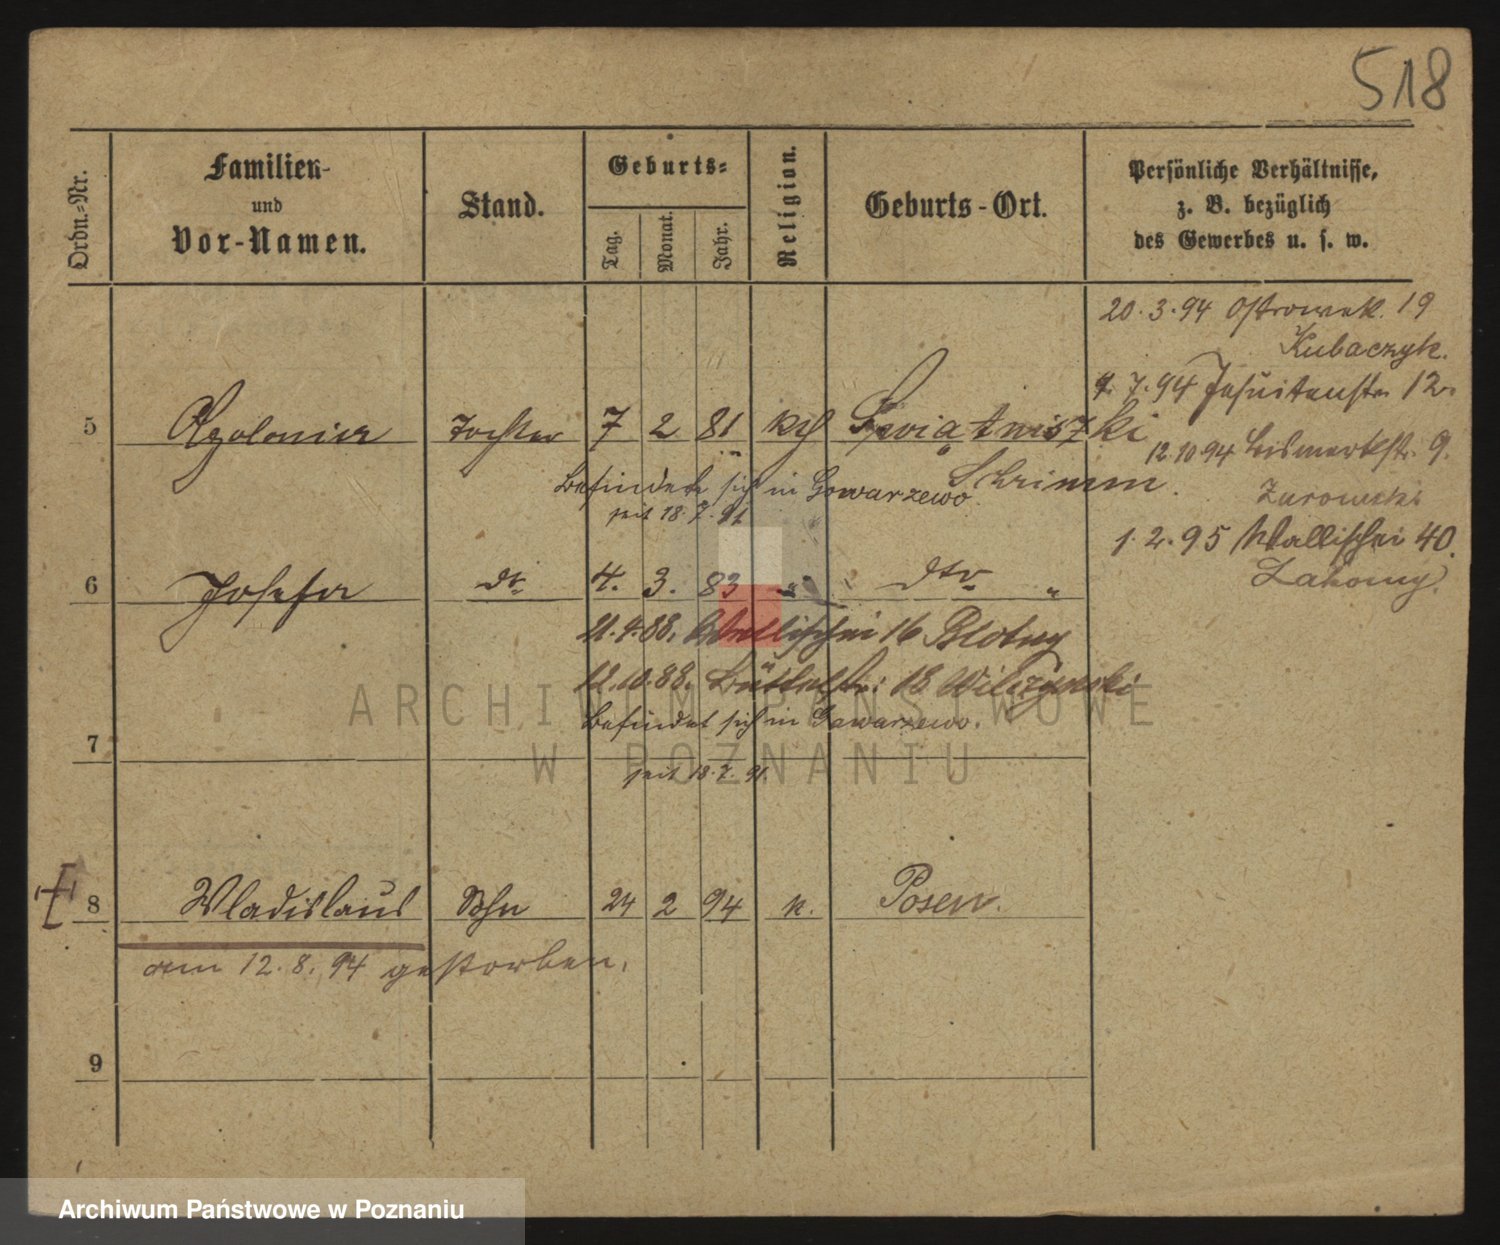 518
Ordn.-Nr.
Familien-
und
Vor-Namen.
Stand.
Geburts-
Tag.
Monat.
Jahr.
Religion.
Geburts-Ort.
Persönliche Verhältnisse,
z. B. bezüglich
des Gewerbes u. s. w.
20.3.94 Ostrowek. 19
Kubaczyk.
9.7.94 Jesuitenstr. 12.
5 Apolonia Tochter 7 2 81 kth Swiątniszki
12.10.94 Bismarkstr. 9.
Schrimm.
Befindet sich in Gowarzewo
Zurowski
seit 18.7.91
1.2.95 Wallischei 40.
Zakomy.
6 Josefa dt. 4. 3. 83 " dto "
21.4.88. Wallischei 16 Blotny
12.10.88. Büttelstr. 18 Wilczynski
Befindet sich in Gowarzewo.
7
seit 18.7.91.
8 Wladislaus Sohn 24 2 94 k. Posen.
am 12.8.94 gestorben.
9
ARCHIWUM PAŃSTWOWE
W POZNANIU
Archiwum Państwowe w Poznaniu